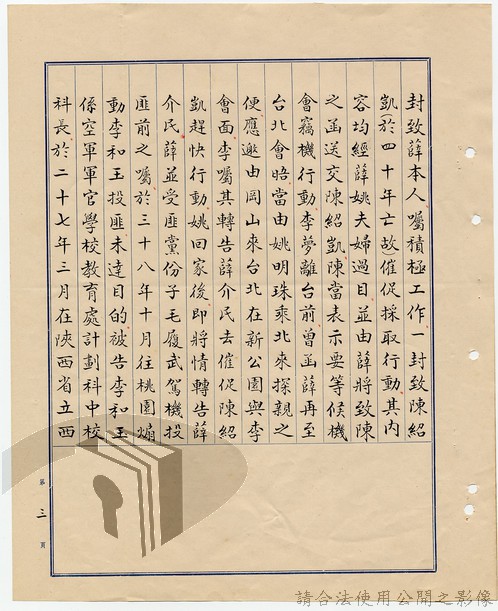 封致薛本人囑積極工作一封致陳紹
凱(於四十年亡故)催促採取行動其內
容均經薛姚夫婦過目並由薛將致陳
之函送交陳紹凱陳當表示要等候機
會竊機行動李夢離台前曾函薛再至
台北會晤當由姚明珠乘北來探親之
便應邀由岡山來台北在新公園與李
會面李囑其轉告薛介民去催促陳紹
凱趕快行動姚回家後即將情轉告薛
介民薛並受匪黨份子毛履武駕機投
匪前之囑於三十八年十月往桃園煽
動李和玉投匪未達目的被告李和玉
係空軍軍官學校教育處計劃科中校
科長於二十七年三月在陝西省立西
第三頁
請合法使用公開之影像